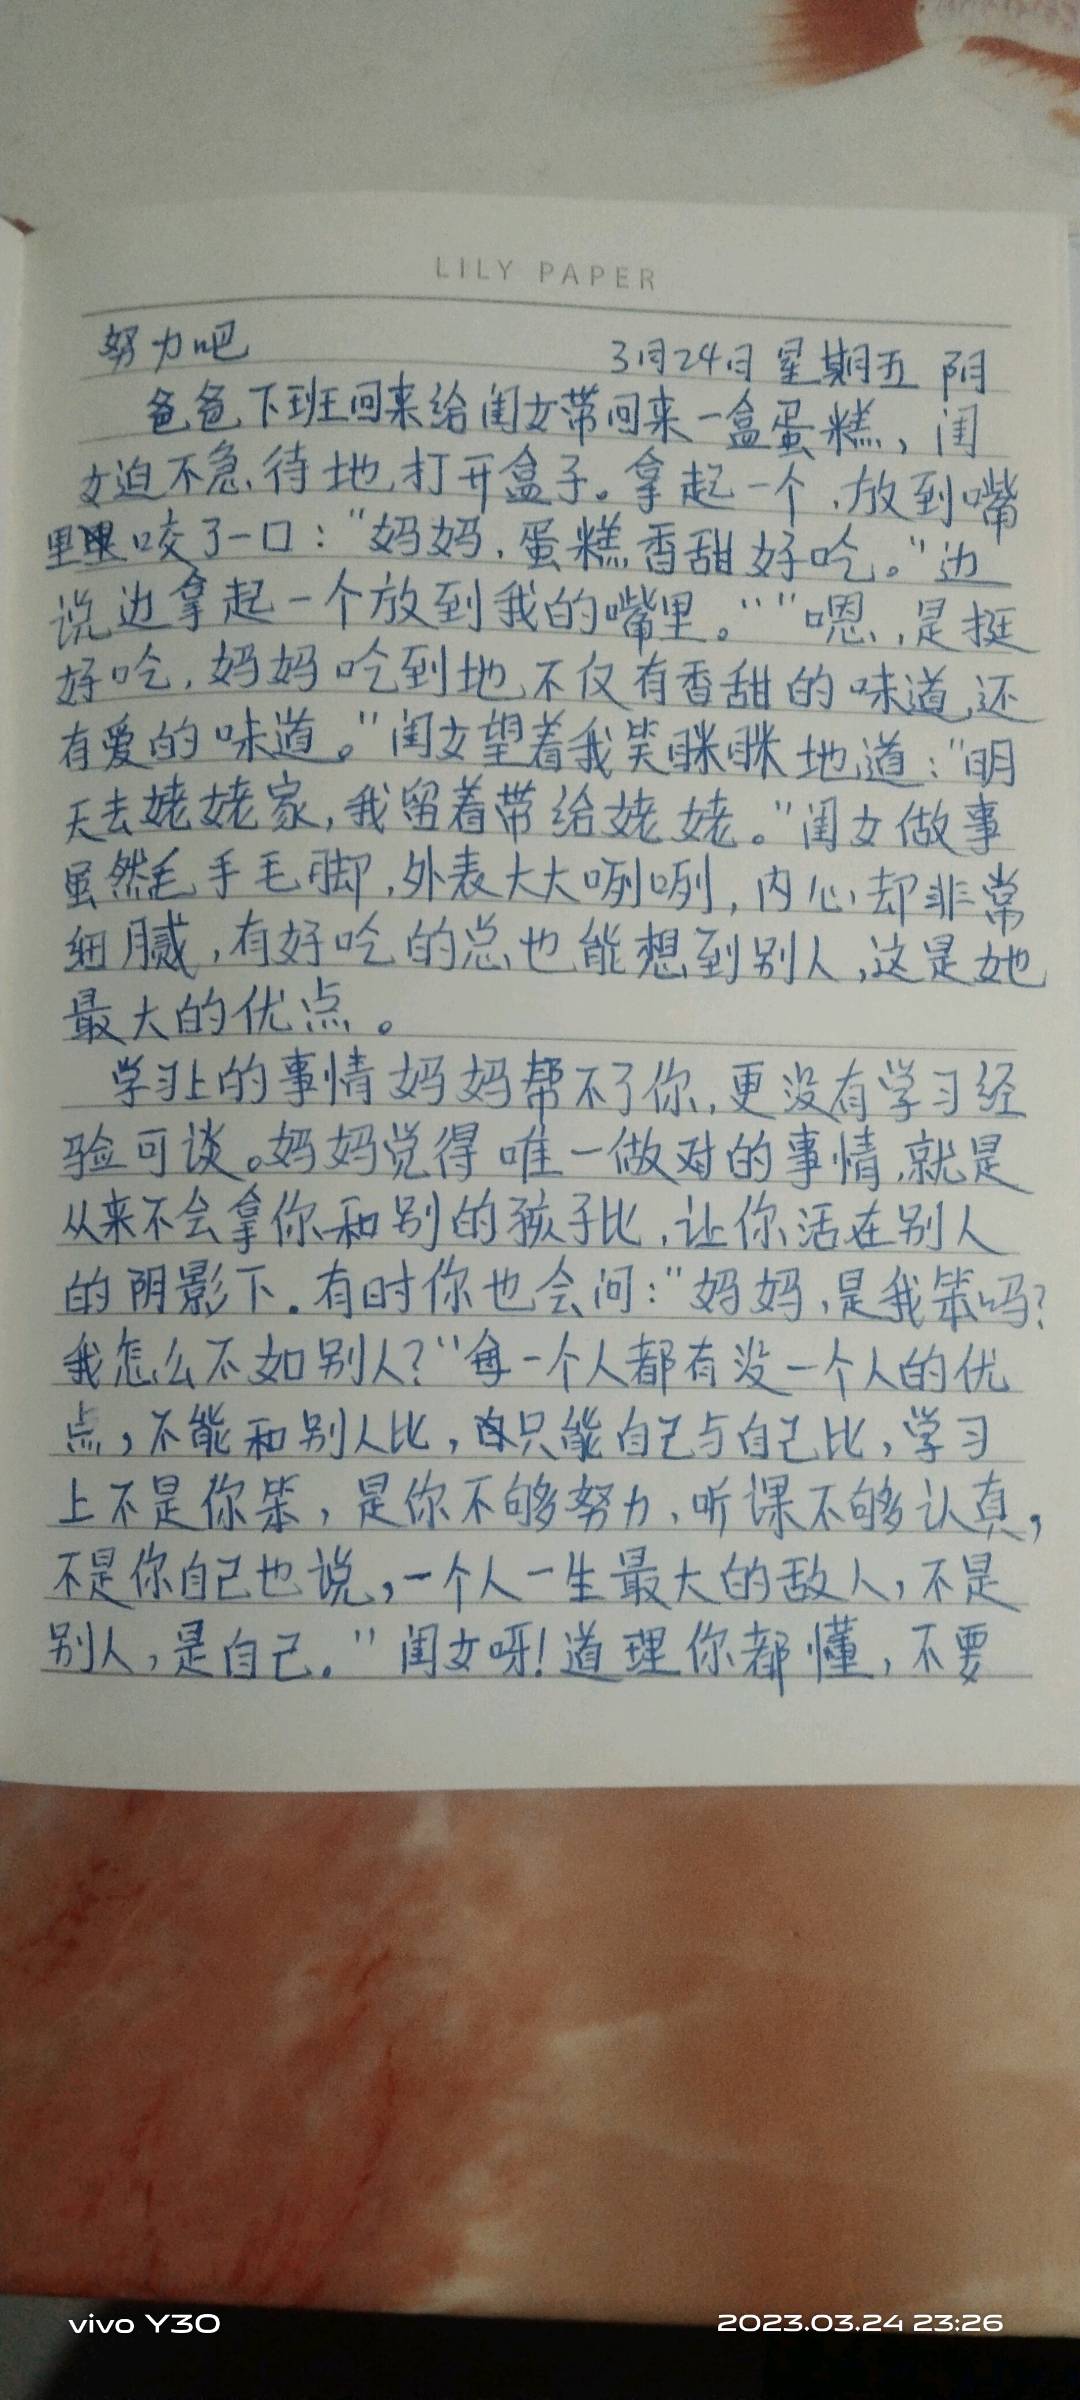 LILY PAPER
努力吧 3月24日 星期五 阴
爸爸下班回来给闺女带回来一盒蛋糕，闺
女迫不急待地打开盒子。拿起一个，放到嘴
里咬了一口：“妈妈，蛋糕香甜好吃。”边
说边拿起一个放到我的嘴里。“”嗯，是挺
好吃，妈妈吃到地不仅有香甜的味道，还
有爱的味道。”闺女望着我笑眯眯地道：“明
天去姥姥家，我留着带给姥姥。”闺女做事
虽然毛手毛脚，外表大大咧咧，内心却非常
细腻，有好吃的总也能想到别人，这是她
最大的优点。
学习上的事情妈妈帮不了你，更没有学习经
验可谈。妈妈觉得唯一做对的事情，就是
从来不会拿你和别的孩子比，让你活在别人
的阴影下。有时你也会问：“妈妈，是我笨吗？
我怎么不如别人？”“每一个人都有没一个人的优
点，不能和别人比，只能自己与自己比，学习
上不是你笨，是你不够努力，听课不够认真，
不是你自己也说，一个人一生最大的敌人，不是
别人，是自己。”闺女呀！道理你都懂，不要
vivo Y30
2023.03.24 23:26